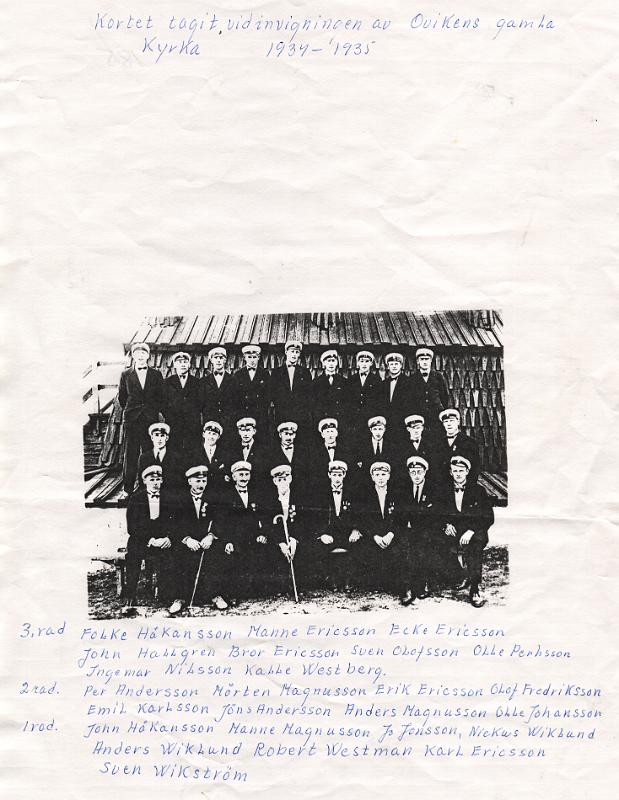 Kortet tagit, vid invigningen av Ovikens gamla
Kyrka 1934-1935
3, rad Folke Håkansson Manne Ericsson Ecke Ericsson
John Hallgren Bror Ericsson Sven Olofsson Olle Perhsson
Ingemar Nilsson Kalle Westberg.
2 rad. Per Andersson Mårten Magnusson Erik Ericsson Olof Fredriksson
Emil Karlsson Jöns Andersson Anders Magnusson Olle Johansson
1 rad. John Håkansson Manne Magnusson Jo Jonsson, Nickus Wiklund
Anders Wiklund Robert Westman Karl Ericsson
Sven Wikström